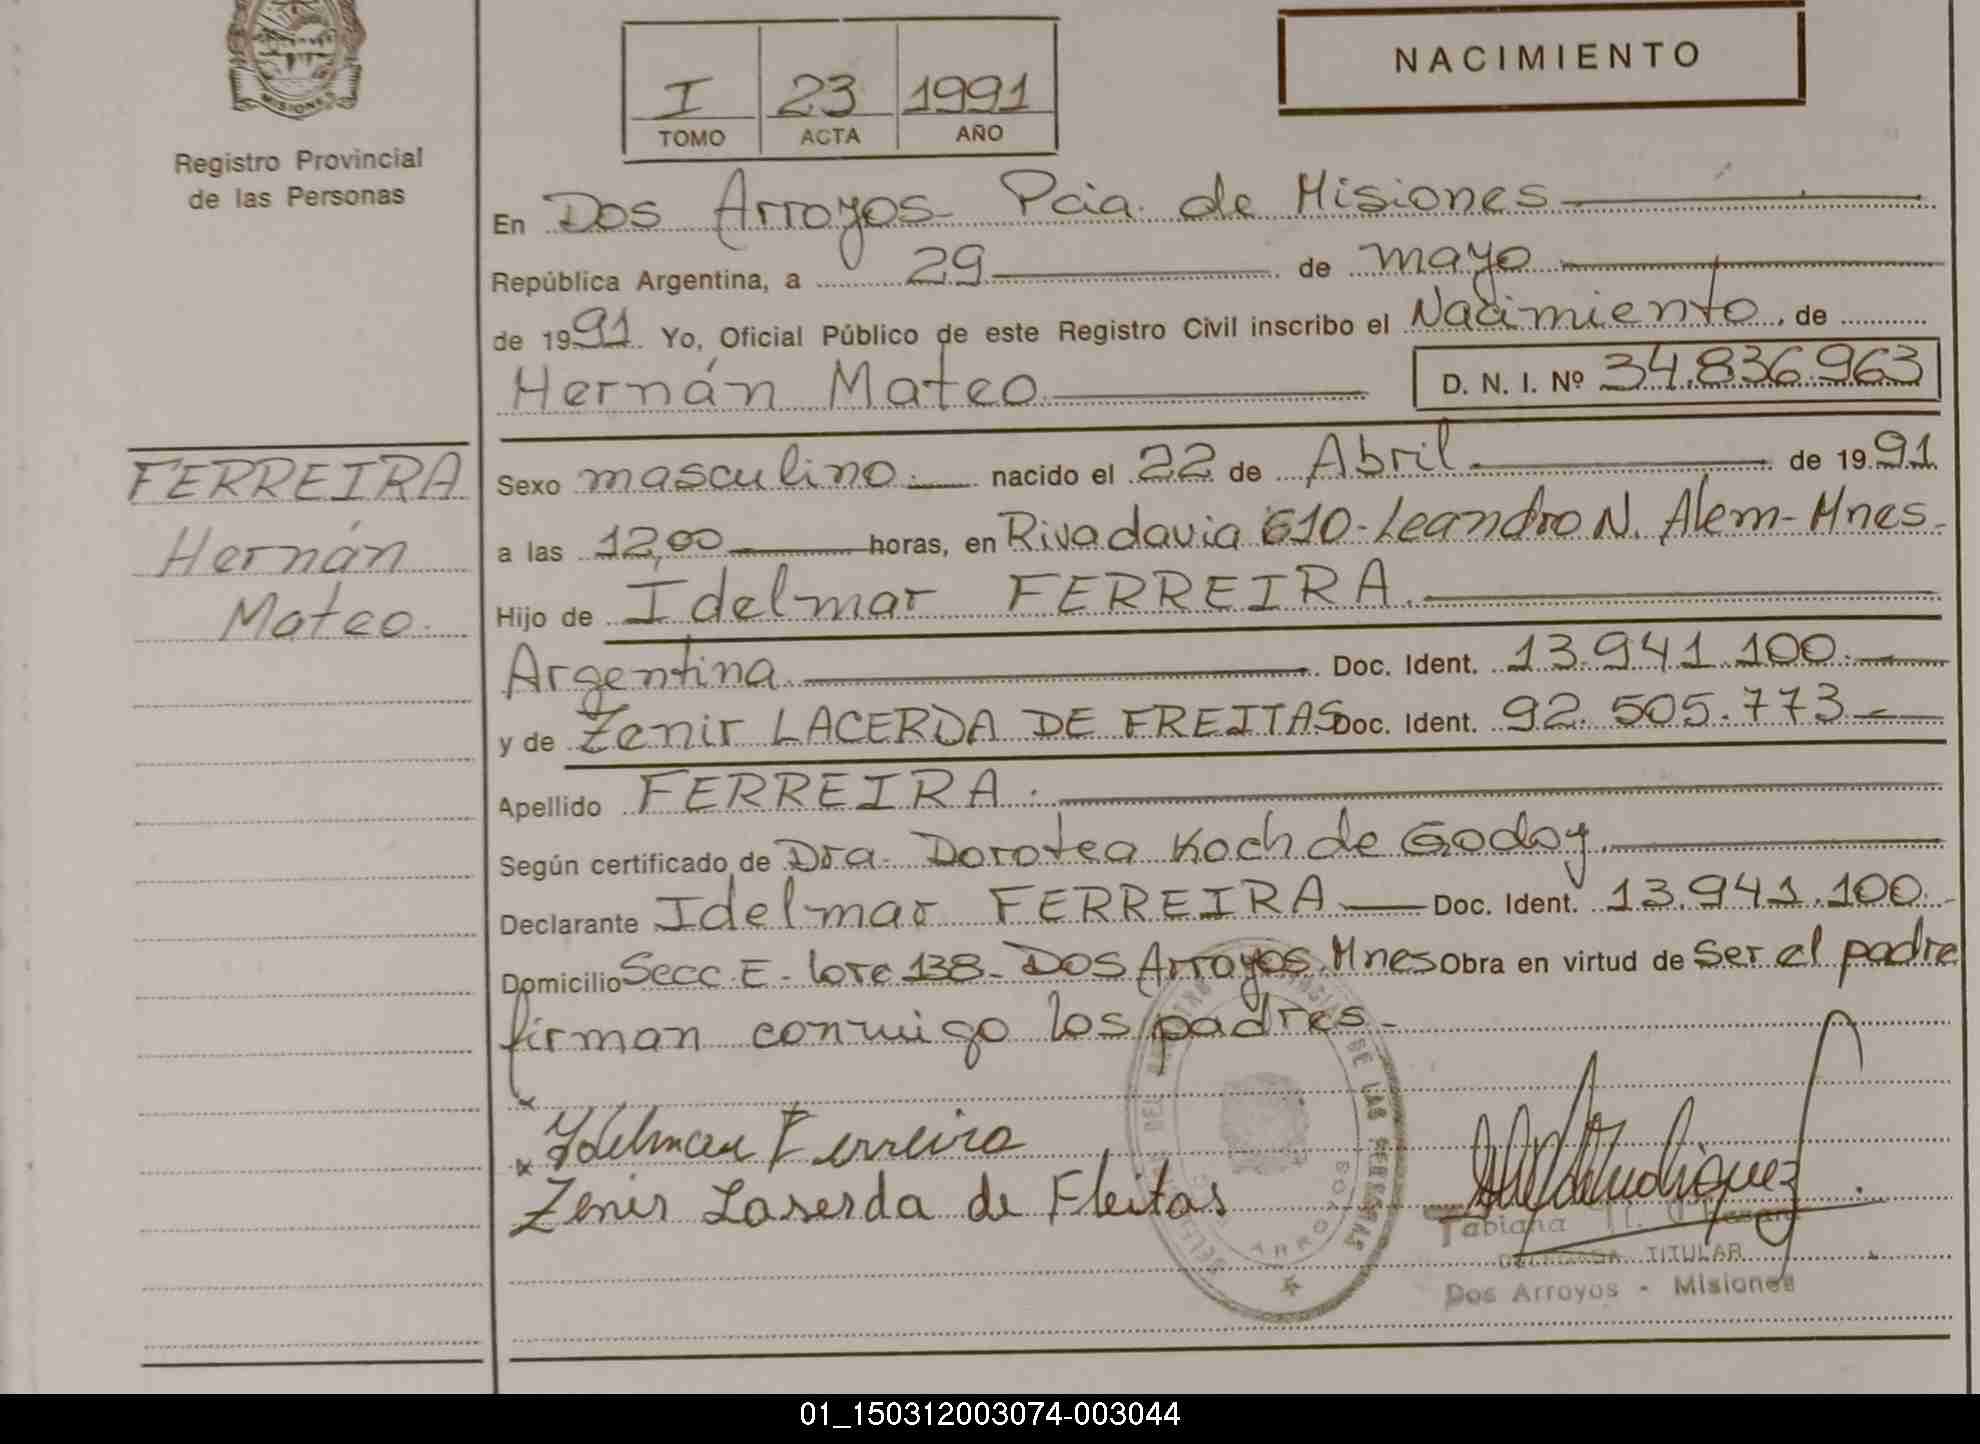 MISIONES
Registro Provincial
de las Personas
I 23 1991
TOMO ACTA AÑO
NACIMIENTO
En Dos Arroyos Pcia. de Misiones
República Argentina, a 29 de mayo
de 1991 Yo, Oficial Público de este Registro Civil inscribo el Nacimiento, de
Hernán Mateo D. N. I. Nº 34.836.963
FERREIRA
Hernán
Mateo.
Sexo masculino.- nacido el 22 de Abril de 1991.
a las 12,00 horas, en Rivadavia 610-Leandro N. Alem-Mnes-
Hijo de Idelmar FERREIRA.
Argentina Doc. Ident. 13.941.100.-
y de Zenir LACERDA DE FREITAS Doc. Ident. 92.505.773-
Apellido FERREIRA.
Según certificado de Dra. Dorotea Koch de Godoy.
Declarante Idelmar FERREIRA Doc. Ident. 13.941.100.-
Domicilio Secc. E - lote 138- Dos Arroyos. Mnes Obra en virtud de ser el padre
firman conmigo los padres.-
x Idelmar Ferreira
x Zenir Laserda de Fleitas
DE LAS PERSONAS
ARROYOS
Fabiana
DELEGADA TITULAR
Dos Arroyos - Misiones
01_150312003074-003044